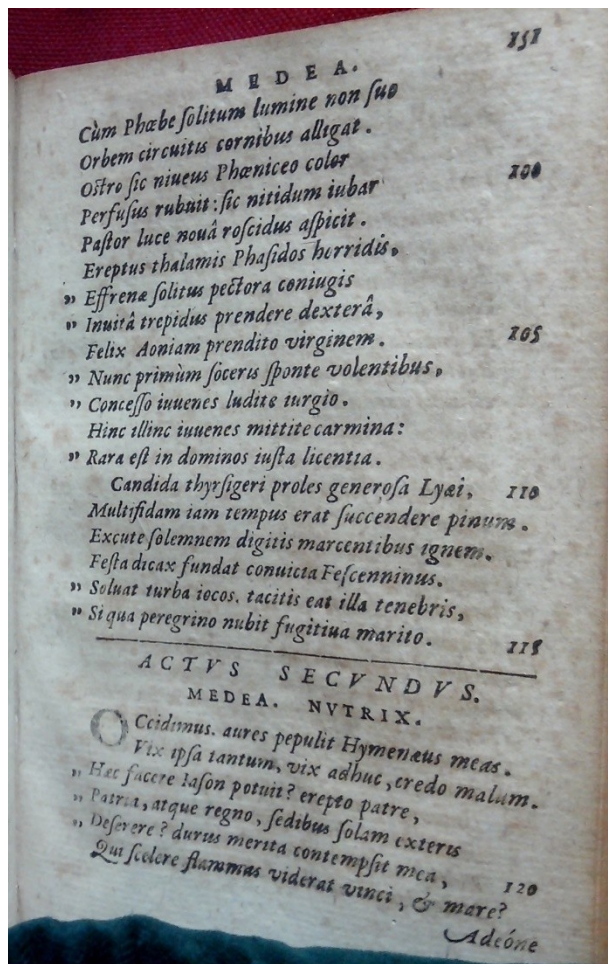 151
MEDEA.
Cùm Phœbe ſolitum lumine non ſuo
Orbem circuitis cornibus alligat.
Oſtro ſic niueus Phœniceo color 100
Perfuſus rubuit: ſic nitidum iubar
Paſtor luce nouâ roſcidus aſpicit.
Ereptus thalamis Phaſidos horridis,
„ Effrenæ ſolitus pectora coniugis
„ Inuitâ trepidus prendere dexterâ, 105
Felix Aoniam prendito virginem.
„ Nunc primùm ſoceris ſponte volentibus,
„ Conceſſo iuuenes ludite iurgio.
Hinc illinc iuuenes mittite carmina:
„ Rara eſt in dominos iuſta licentia.
Candida thyrſigeri proles generoſa Lyæi, 110
Multifidam iam tempus erat ſuccendere pinum.
Excute ſolemnem digitis marcentibus ignem.
Feſta dicax fundat conuicia Feſcenninus.
„ Soluat turba iocos. tacitis eat illa tenebris,
„ Si qua peregrino nubit fugitiua marito. 115
ACTVS SECVNDVS.
MEDEA. NVTRIX.
OCcidimus. aures pepulit Hymenæus meas.
Vix ipſa tantum, vix adhuc, credo malum.
„ Hæc facere Iaſon potuit? erepto patre,
„ Patria, atque regno, ſedibus ſolam exteris
„ Deſerere? durus merita contempſit mea, 120
Qui ſcelere flammas viderat vinci, & mare?
Adeóne